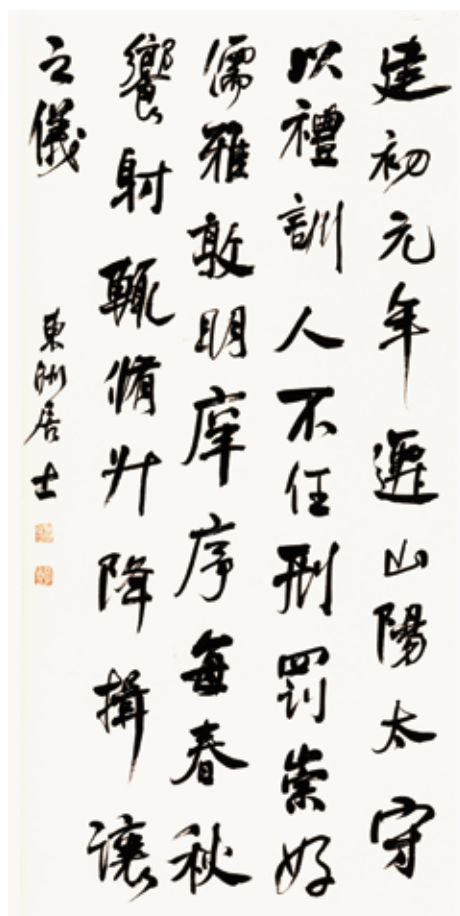 建初元年遷山陽太守
以禮訓人不任刑罰崇好
儒雅敦明庠序每春秋
饗射輒脩升降揖讓
之儀
東洲居士